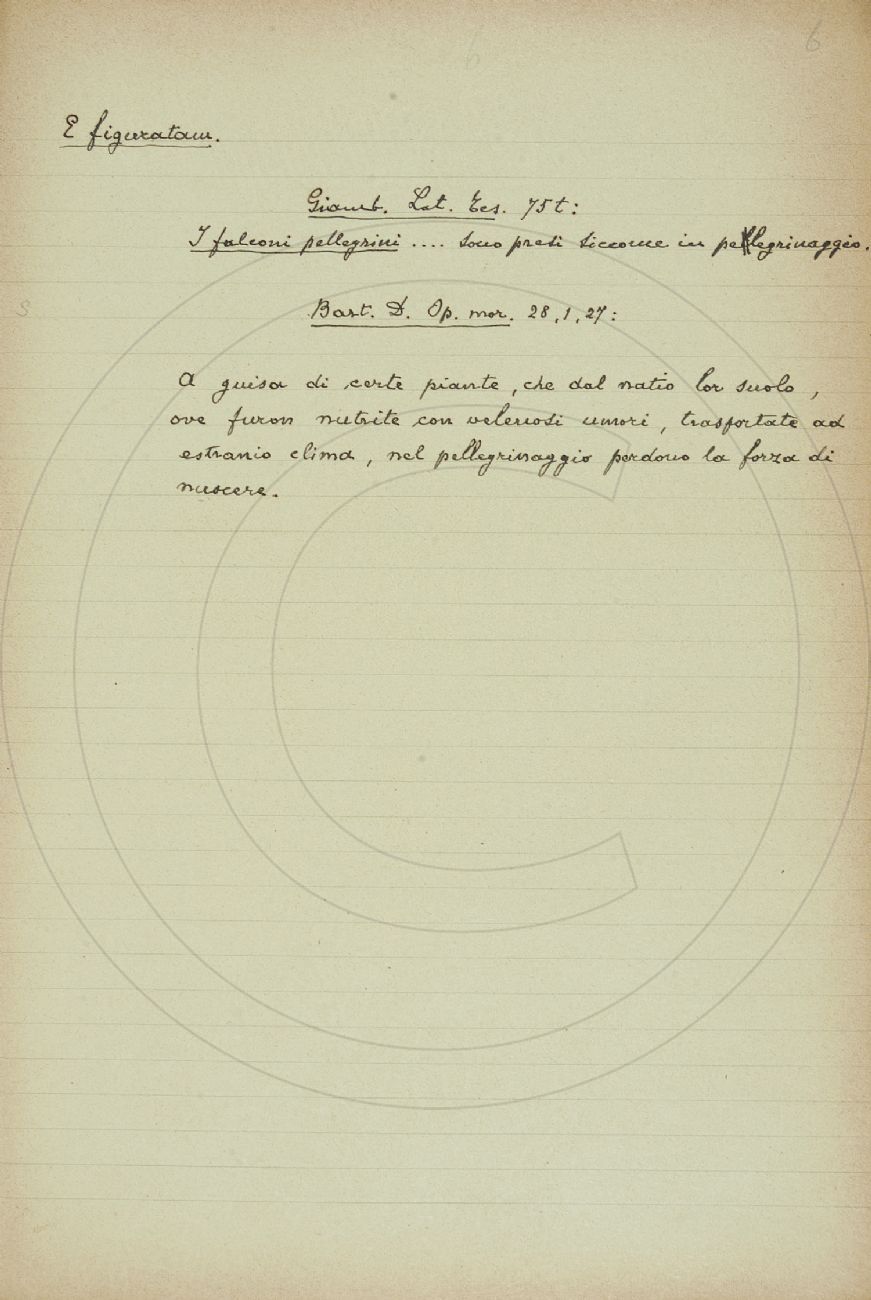 6
E figuratam.
Giamb. Lat. Tes. 75t:
I falconi pellegrini .... sono presi siccome in pellegrinaggio.
Bart. D. Op. mor. 28, 1, 27:
A guisa di certe piante, che dal natio lor suolo,
ove furon nutrite con velenosi umori, trasportate ad
estranio clima, nel pellegrinaggio perdono la forza di
nuocere.